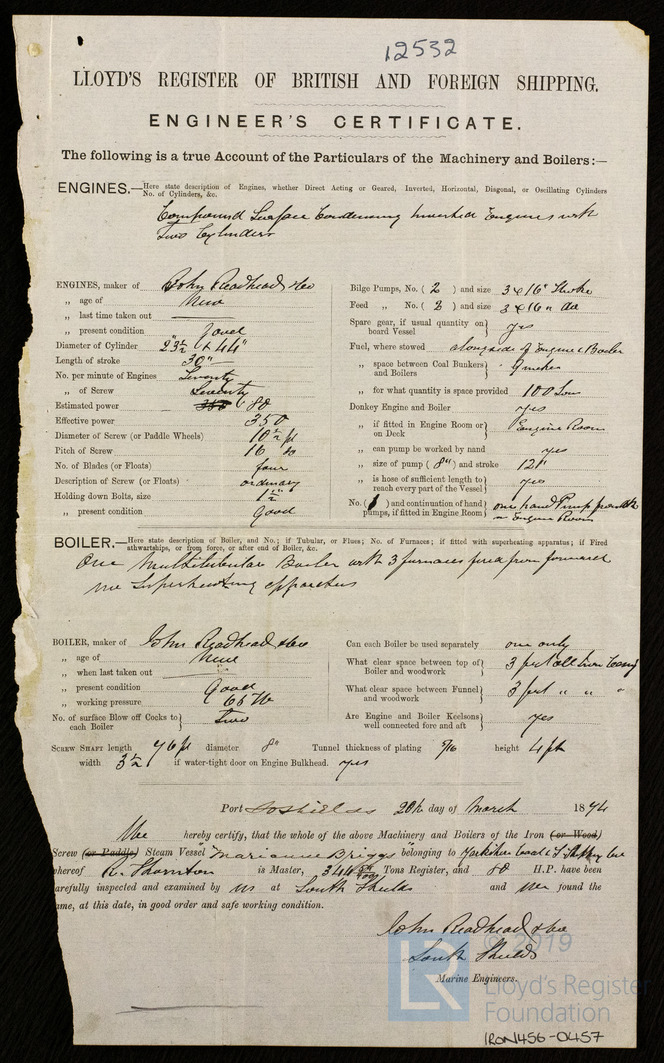 12532
LLOYD'S REGISTER OF BRITISH AND FOREIGN SHIPPING.
ENGINEER'S CERTIFICATE.
The following is a true Account of the Particulars of the Machinery and Boilers:—
ENGINES.—Here state description of Engines, whether Direct Acting or Geared, Inverted, Horizontal, Diagonal, or Oscillating Cylinders
No. of Cylinders, &c.
Compound Surface Condensing Inverted Engines with
Two Cylinders
ENGINES, maker of John Readhead & Co
„ age of New
„ last time taken out
„ present condition Good
Diameter of Cylinder 23½" & 44"
Length of stroke 30"
No. per minute of Engines Seventy
„ of Screw Seventy
Estimated power 80
Effective power 350
Diameter of Screw (or Paddle Wheels) 10½ ft
Pitch of Screw 16 do
No. of Blades (or Floats) four
Description of Screw (or Floats) ordinary
Holding down Bolts, size 1½"
„ present condition Good
Bilge Pumps, No. ( 2 ) and size 3 & 16" Stroke
Feed „ No. ( 2 ) and size 3 & 16" do
Spare gear, if usual quantity on board Vessel yes
Fuel, where stowed alongside of Engine & Boiler
„ space between Coal Bunkers and Boilers 9 inches
„ for what quantity is space provided 100 Tons
Donkey Engine and Boiler yes
„ if fitted in Engine Room or on Deck Engine Room
„ can pump be worked by hand yes
„ size of pump ( 8" ) and stroke 12"
„ is hose of sufficient length to reach every part of the Vessel yes
No. ( 1 ) and continuation of hand pumps, if fitted in Engine Room one hand Pump
in Engine Room
BOILER.—Here state description of Boiler, and No.; if Tubular, or Flues; No. of Furnaces; if fitted with superheating apparatus; if Fired
athwartships, or from force, or after end of Boiler, &c.
One Multitubular Boiler with 3 furnaces fired from forward
no Superheating apparatus
BOILER, maker of John Readhead & Co
„ age of New
„ when last taken out
„ present condition Good
„ working pressure 65 lb
No. of surface Blow off Cocks to each Boiler Two
Can each Boiler be used separately one only
What clear space between top of Boiler and woodwork 3 feet all Iron
What clear space between Funnel and woodwork 3 feet „ „ „
Are Engine and Boiler Keelsons well connected fore and aft yes
SCREW SHAFT length 76 ft diameter 8" Tunnel thickness of plating 5/16 height 4 ft
width 3½ if water-tight door on Engine Bulkhead. yes
Port So Shields 20th day of March 1874
We hereby certify, that the whole of the above Machinery and Boilers of the Iron (or Wood)
Screw (or Paddle) Steam Vessel "Marianne Briggs" belonging to Yorkshire Coal &
whereof R. Thornton is Master, 344 Tons Register, and 80 H.P. have been
carefully inspected and examined by us at South Shields and We found the
same, at this date, in good order and safe working condition.
John Readhead & Co
South Shields
Marine Engineers.
LR
© 2019
Lloyd's Register
Foundation
IRON456-0457